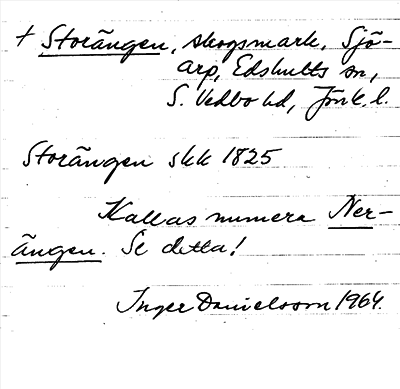 + Storängen, skogsmark, Sjö-
arp, Edshults sn,
S. Vedbo hd, Jönk. l.
Storängen skk 1825
Kallas numera Ner-
ängen. Se detta!
Inger Danielsson 1964.